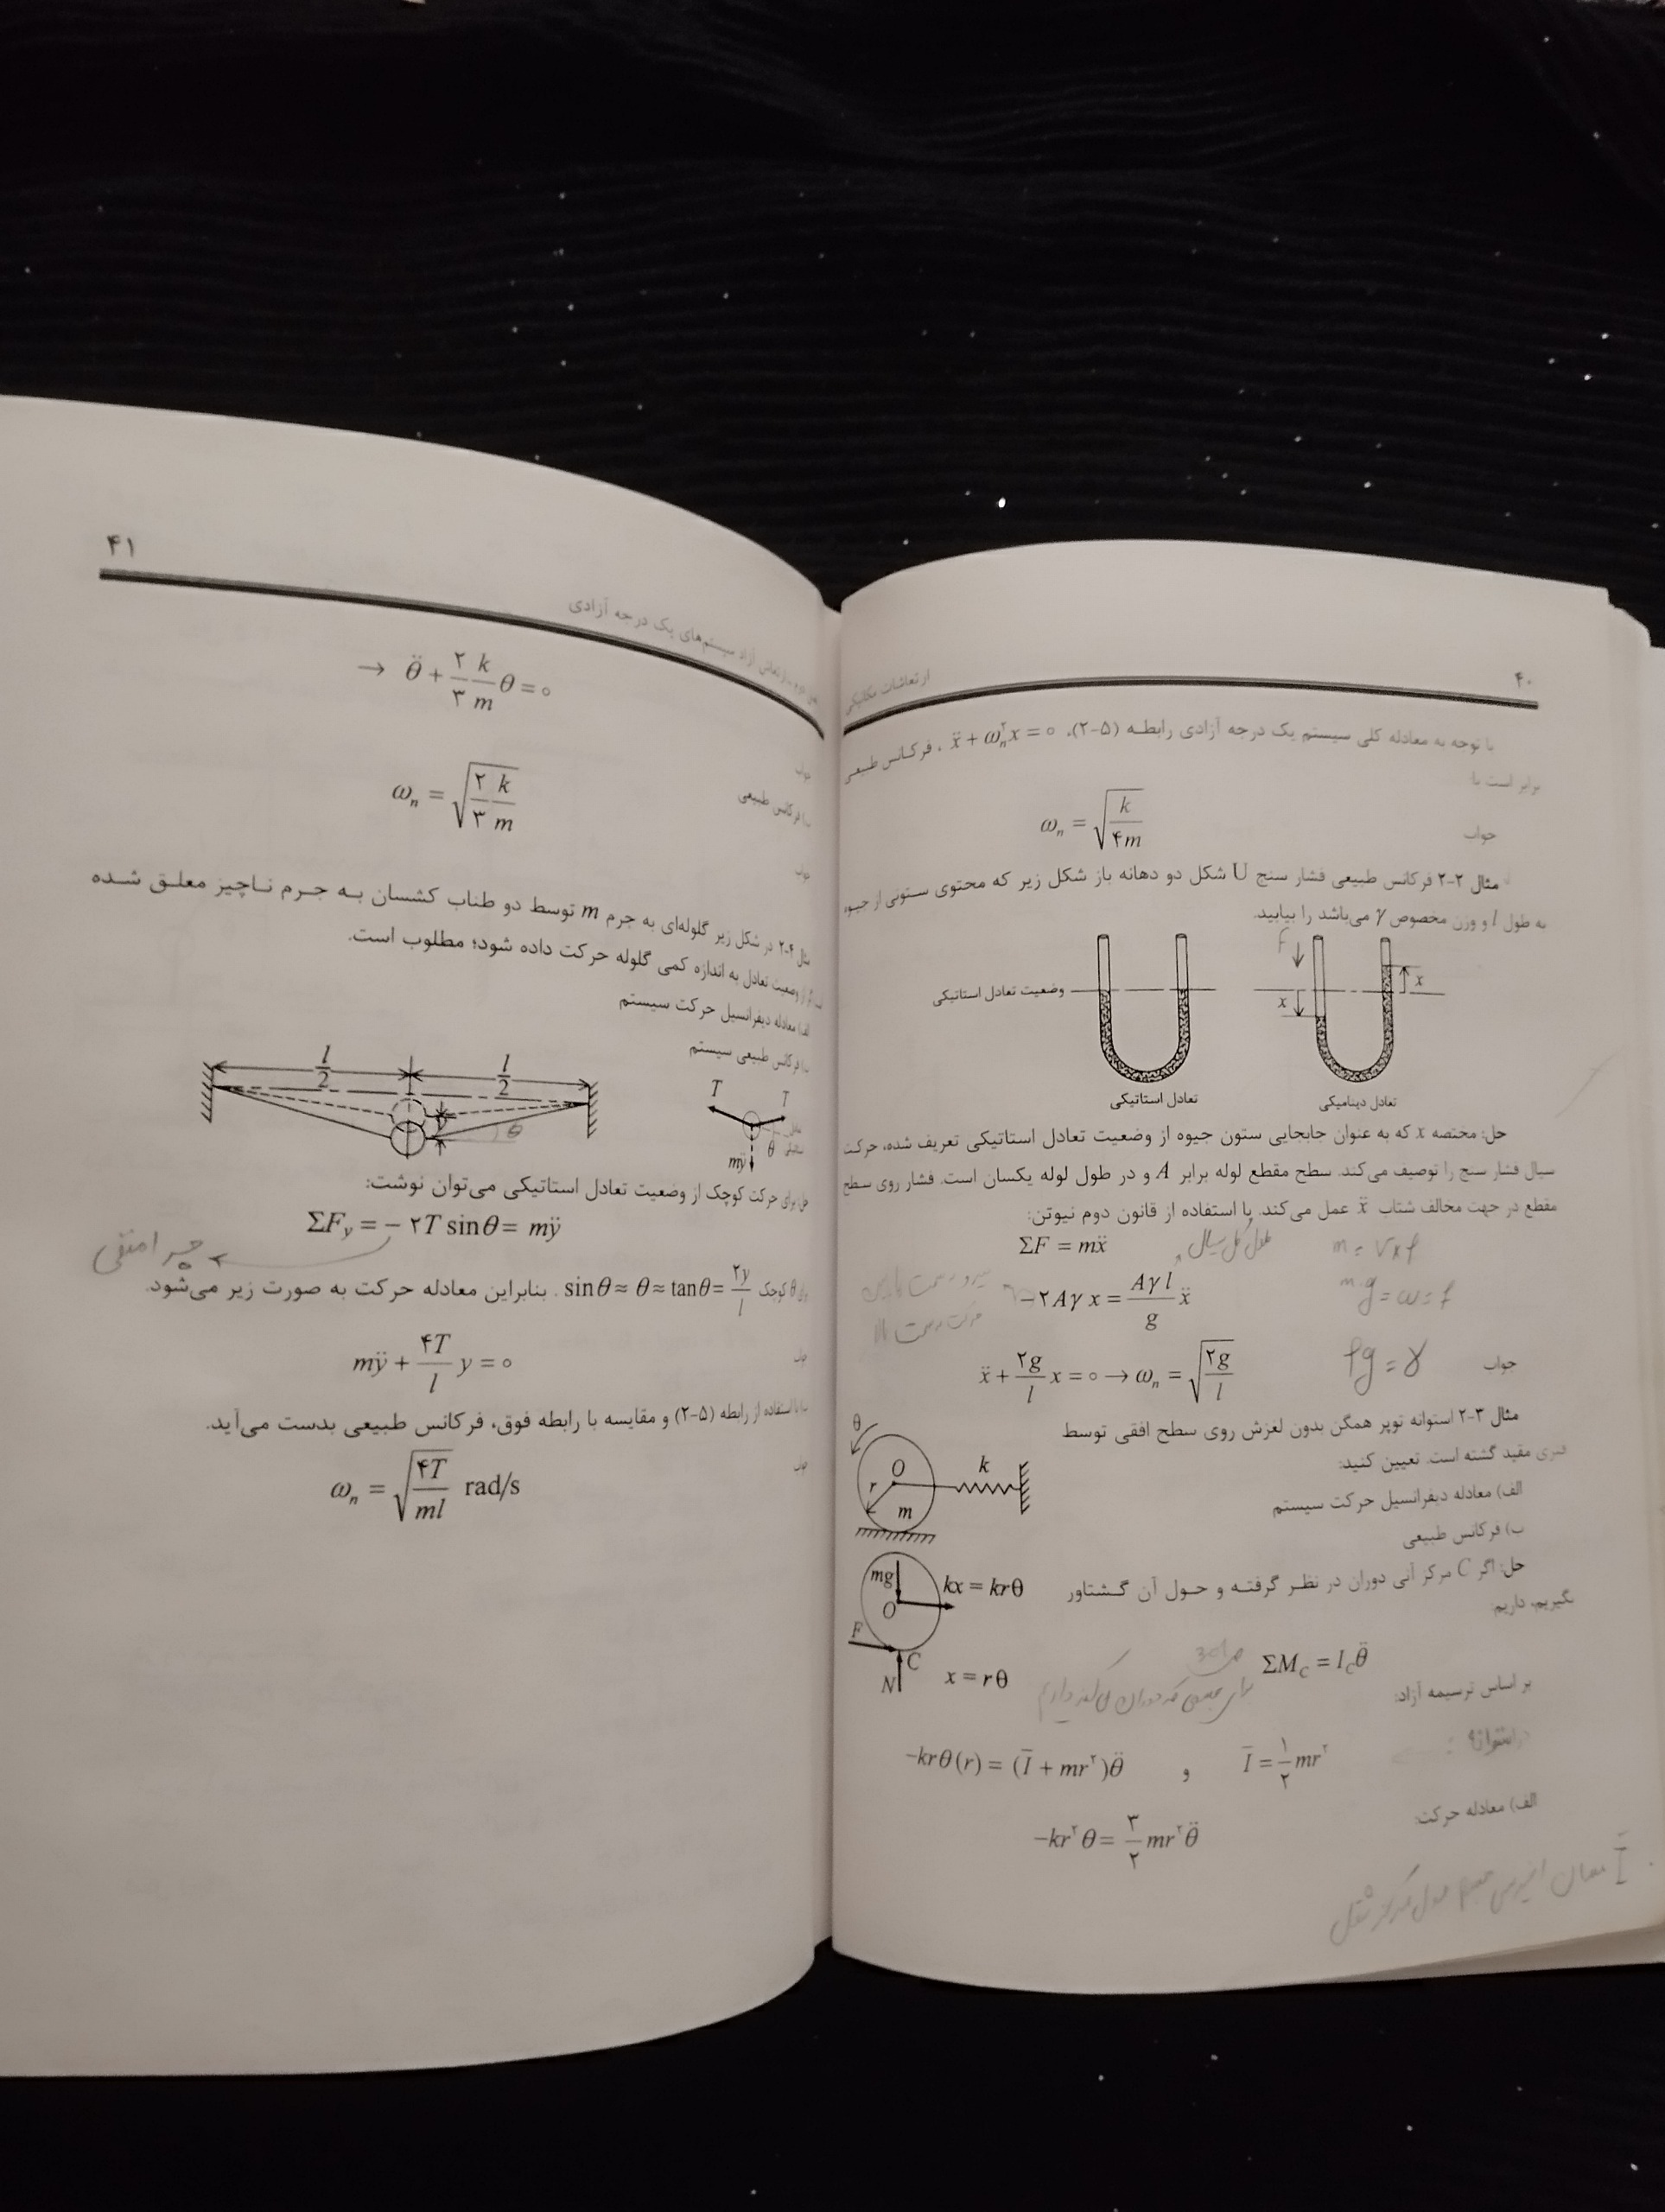 ۴۰
ارتعاشات مکانیکی
با توجه به معادله کلی سیستم یک درجه آزادی رابطه (۵-۲)، ẍ + ωₙ²x = ۰ ، فرکانس طبیعی
برابر است با:
ωₙ = √(k/۴m)
جواب
مثال ۲-۲ فرکانس طبیعی فشار سنج U شکل دو دهانه باز شکل زیر که محتوی ستونی از جیوه
به طول l و وزن مخصوص γ می‌باشد را بیابید.
f
وضعیت تعادل استاتیکی
x
x
تعادل استاتیکی
تعادل دینامیکی
حل: مختصه x که به عنوان جابجایی ستون جیوه از وضعیت تعادل استاتیکی تعریف شده، حرکت
سیال فشار سنج را توصیف می‌کند. سطح مقطع لوله برابر A و در طول لوله یکسان است. فشار روی سطح
مقطع در جهت مخالف شتاب ẍ عمل می‌کند. با استفاده از قانون دوم نیوتن:
ΣF = mẍ
طول کل سیال
m = V×ρ
−۲Aγx = (Aγl/g) ẍ
m.g = ω = f
ẍ + (۲g/l) x = ۰ → ωₙ = √(۲g/l)
ρg = γ
جواب
مثال ۳-۲ استوانه توپر همگن بدون لغزش روی سطح افقی توسط
فنری مقید گشته است. تعیین کنید:
الف) معادله دیفرانسیل حرکت سیستم
ب) فرکانس طبیعی
θ
O
k
r
m
حل: اگر C مرکز آنی دوران در نظر گرفته و حول آن گشتاور
بگیریم، داریم:
mg
O
kx = krθ
F
C
N
x = rθ
ΣM_C = I_C θ̈
بر اساس ترسیمه آزاد:
−krθ(r) = (Ī + mr²)θ̈ و Ī = ۱/۲ mr²
الف) معادله حرکت:
−kr²θ = ۳/۲ mr²θ̈
Ī ممان اینرسی جسم حول مرکز ثقل
۴۱
ارتعاش آزاد سیستم‌های یک درجه آزادی
→ θ̈ + (۲/۳)(k/m)θ = ۰
جواب
فرکانس طبیعی
ωₙ = √((۲/۳)(k/m))
جواب
مثال ۴-۲ در شکل زیر گلوله‌ای به جرم m توسط دو طناب کشسان به جرم ناچیز معلق شده
وضعیت تعادل به اندازه کمی گلوله حرکت داده شود؛ مطلوب است.
الف) معادله دیفرانسیل حرکت سیستم
ب) فرکانس طبیعی سیستم
l/2
l/2
y
θ
T
T
θ
mÿ
حل: برای حرکت کوچک از وضعیت تعادل استاتیکی می‌توان نوشت:
ΣF_y = − ۲T sinθ = mÿ
چرا منفی
برای θ کوچک sinθ ≈ θ ≈ tanθ = ۲y/l . بنابراین معادله حرکت به صورت زیر می‌شود.
mÿ + (۴T/l) y = ۰
جواب
ب) با استفاده از رابطه (۵-۲) و مقایسه با رابطه فوق، فرکانس طبیعی بدست می‌آید.
ωₙ = √(۴T/ml) rad/s
جواب